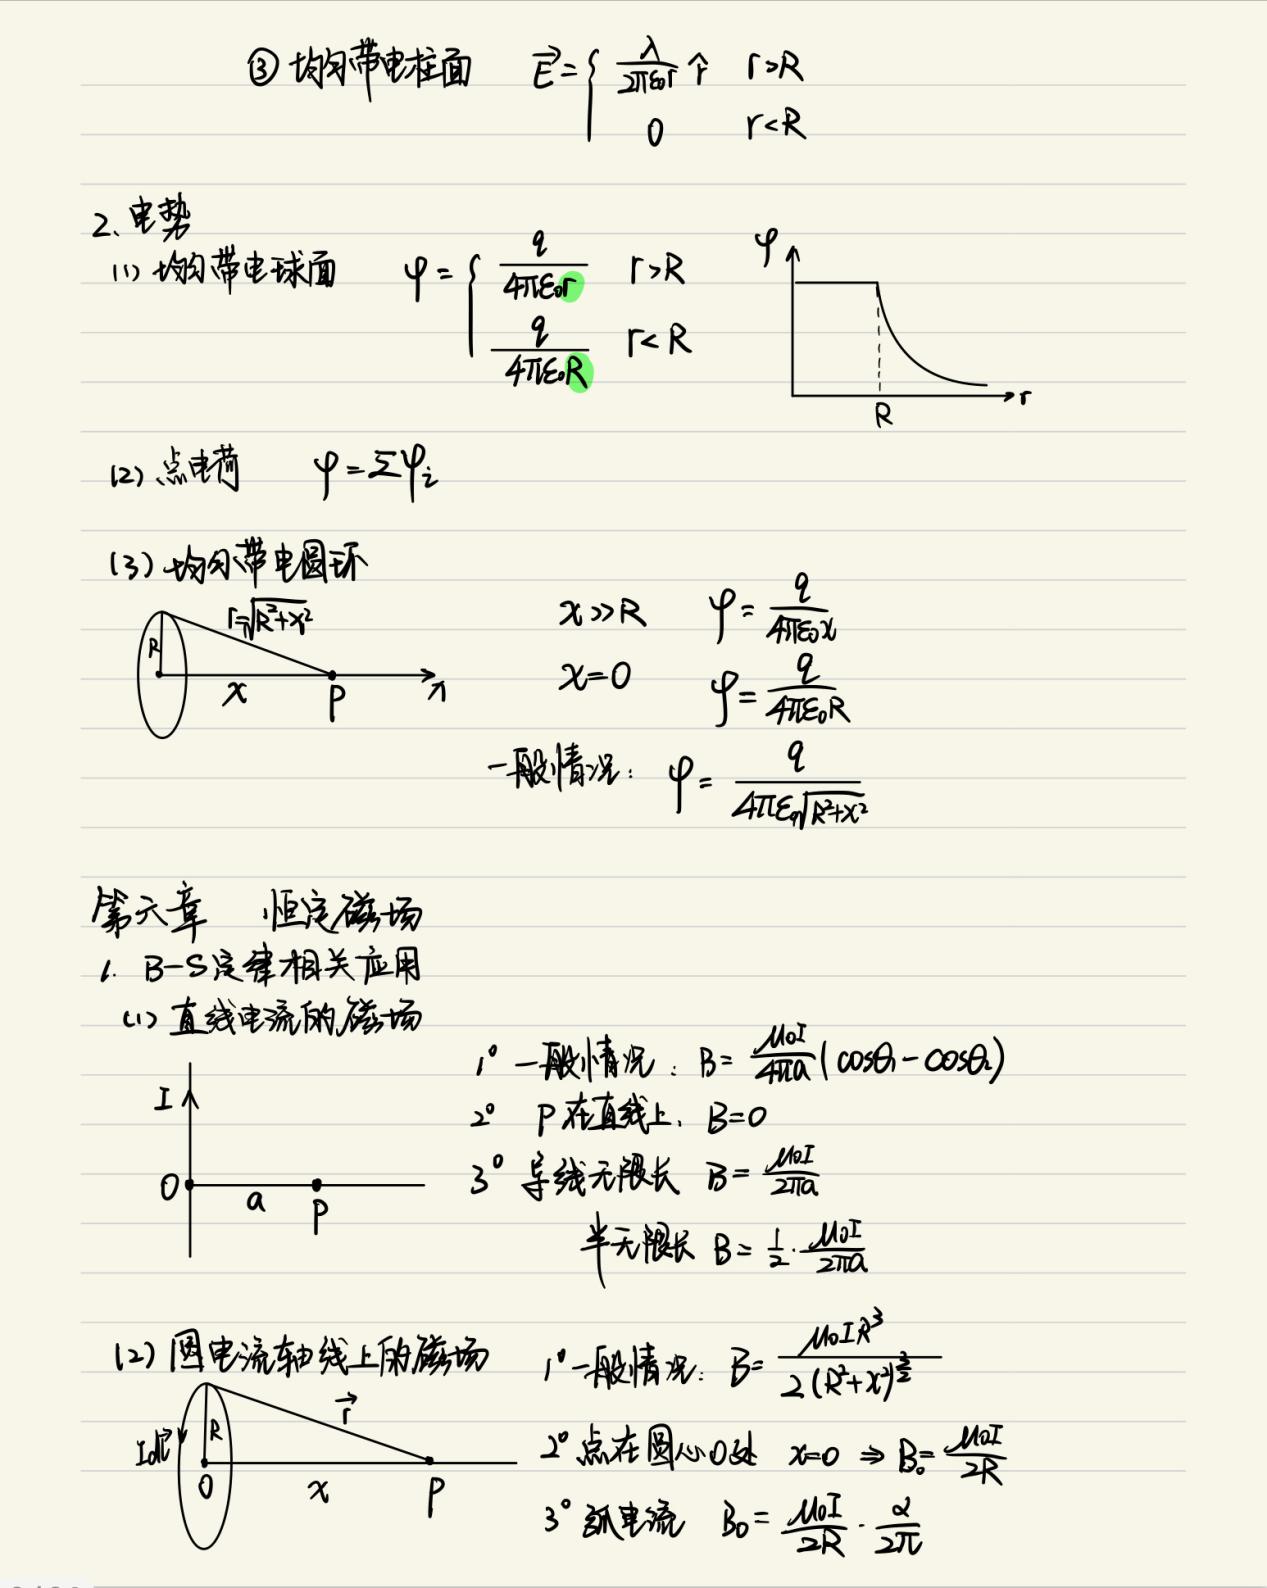 ③ 均匀带电柱面 E⃗ = { λ/(2πε₀r) r̂ r>R
0 r<R
2. 电势
(1) 均匀带电球面 φ = { q/(4πε₀r) r>R
q/(4πε₀R) r<R
φ
r
R
(2) 点电荷 φ = Σφᵢ
(3) 均匀带电圆环
r=√(R²+x²)
R
x
P
x
x>>R φ = q/(4πε₀x)
x=0 φ = q/(4πε₀R)
一般情况: φ = q/(4πε₀√(R²+x²))
第六章 恒定磁场
1. B-S定律相关应用
(1) 直线电流的磁场
I
O
a
P
1° 一般情况: B = μ₀I/(4πa) (cosθ₁ - cosθ₂)
2° P在直线上. B=0
3° 导线无限长 B = μ₀I/(2πa)
半无限长 B = 1/2 · μ₀I/(2πa)
(2) 圆电流轴线上的磁场
Idl⃗
R
r⃗
O
x
P
1° 一般情况: B = μ₀IR³/(2(R²+x²)^(3/2))
2° 点在圆心O处 x=0 ⇒ B₀ = μ₀I/(2R)
3° 弧电流 B₀ = μ₀I/(2R) · α/(2π)